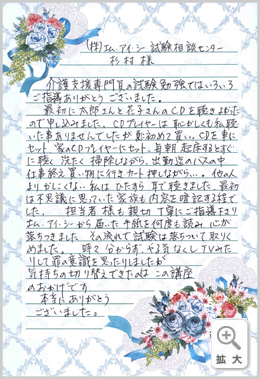 (株)エム・アイ・シー 試験相談センター
杉村 様
介護支援専門員の試験勉強ではいろいろ
ご指導ありがとうございました。
最初に太郎さんと花子さんのCDを聴きよかった
ので申し込みました。CDプレイヤーは恥かしくも私聴
いた事ありませんでしたが 初めて買い。CDを車に
セット 家のCDプレイヤーにセット、毎朝起床すると すぐ
に聴く 洗たく 掃除しながら、出勤途のバスの中
仕事終え買い物に行き カート押しながら…。他の人
よりかしこくない私は ひたすら 耳で聴きました。最初
は不思議に思っていた家族も内容を暗記する程で
した。 担当者様も親切丁寧にご指導下さり
エム・アイ・シーから届いた手紙を何度も読み 心が
落ちつきました。その流れで試験は落ちついて取りく
めました。 時々 分からず やる気なくし TVみた
りして罪の意識を 思ったりしましたが
気持ちの切り替えできたのは この講座
のおかげです
本当にありがとう
ございました。
拡大